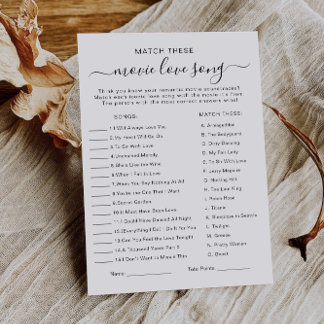 MATCH THESE
movie love song
Think you know your romantic movie soundtracks?
Match each iconic love song with the movie it's from.
The person with the most correct answers wins!
SONGS:
1. I Will Always Love You
2. My Heart Will Go On
3. To Sir With Love
4. Unchained Melody
5. She's Like the Wind
6. When I Fall In Love
7. When You Say Nothing At All
8. You're the One That I Want
9. Secret Garden
10. It Must Have Been Love
11. I Could Have Danced All Night
12. (Everything I Do) I Do It for You
13. Can You Feel the Love Tonight
14. A Thousand Years Part 2
15. I Don't Want to Miss a Thing
MATCH THESE:
A. Armageddon
B. The Bodyguard
C. Dirty Dancing
D. My Fair Lady
E. To Sir With Love
F. Jerry Maguire
G. Notting Hill
H. The Lion King
I. Robin Hood
J. Titanic
K. Sleepless in Seattle
L. Twilight
M. Grease
N. Pretty Woman
O. Ghost
Name:
Total Points: